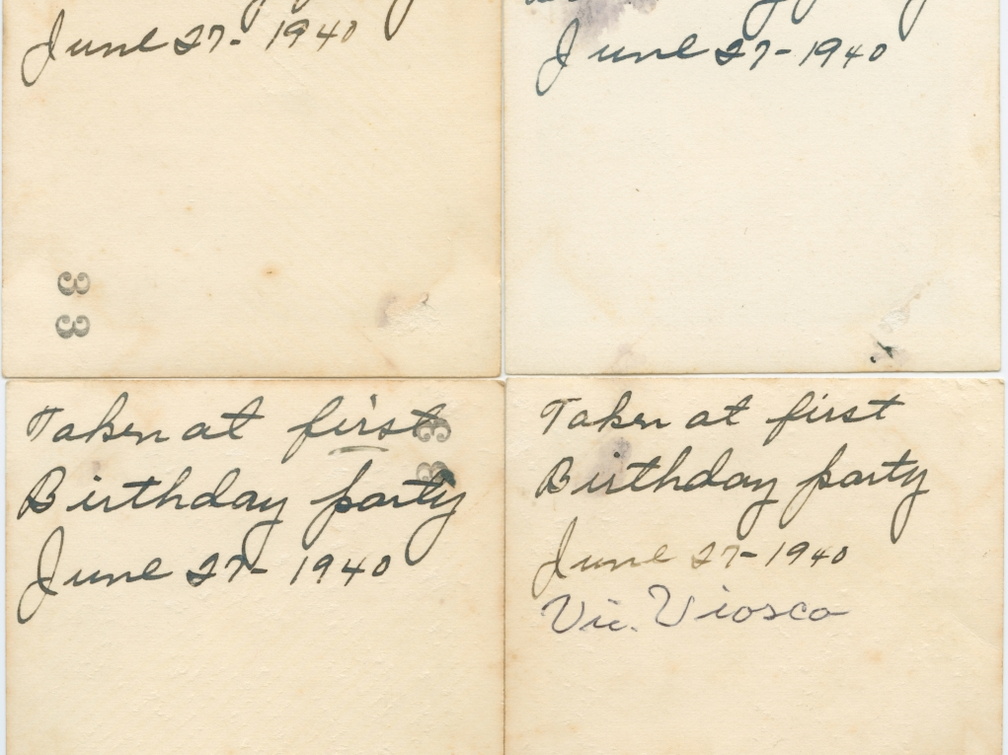 June 27-1940
June 27-1940
33
Taken at first
Birthday party
June 27-1940
33
Taken at first
Birthday party
June 27-1940
Vic. Viosca